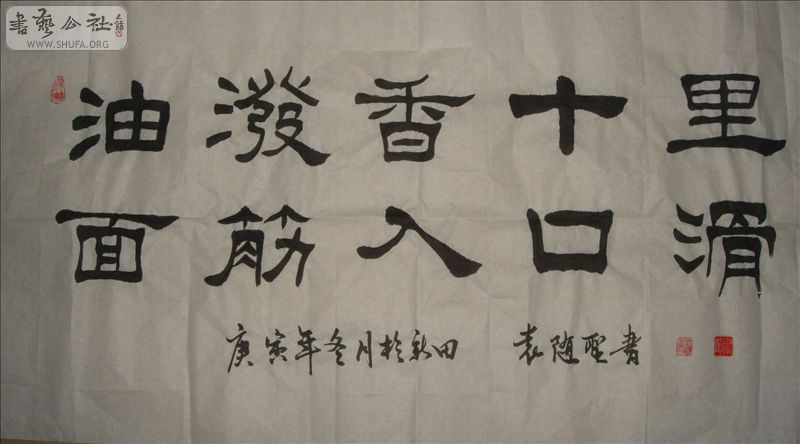 書藝公社
WWW.SHUFA.ORG
油潑香十里
面筋入口滑
庚寅年冬月於新田 袁随聖書